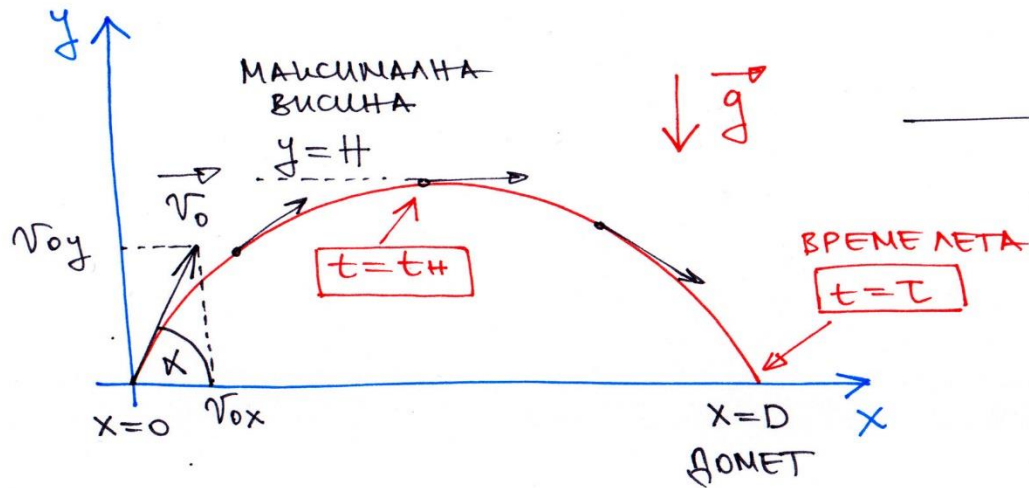 y
МАКСИМАЛНА
ВИСИНА
y = H
g
v₀
v₀y
t = tн
ВРЕМЕ ЛЕТА
t = τ
α
x = 0
v₀x
x = D
x
ДОМЕТ